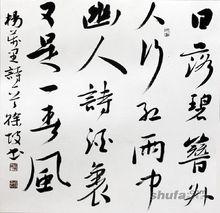 日落碧簪外
人行红雨中
幽人詩酒裏
又是一春風
楊萬里詩一首 徐改书
shufa